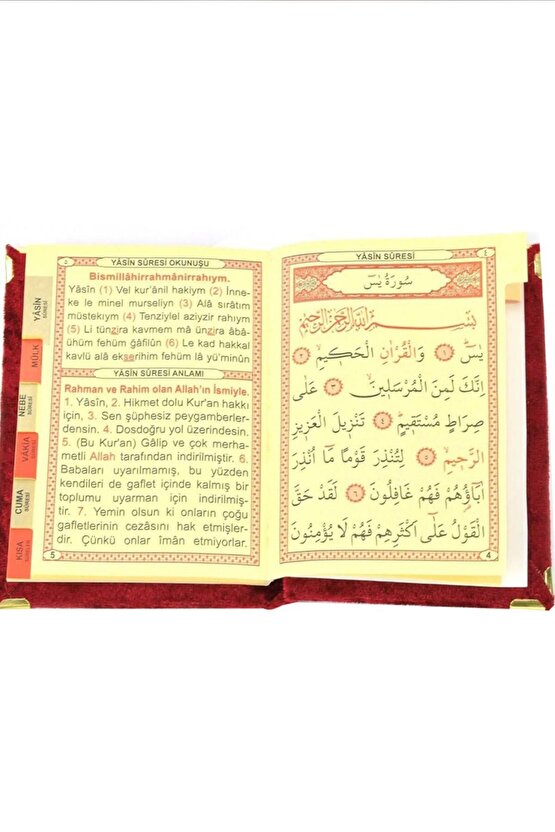 YÂSÎN SÛRESİ
٤
سُورَةُ يٰسٓ
بِسْمِ اللّٰهِ الرَّحْمٰنِ الرَّحِيمِ
يٰسٓ ﴿١﴾ وَالْقُرْاٰنِ الْحَكِيمِ ﴿٢﴾
اِنَّكَ لَمِنَ الْمُرْسَلِينَ ﴿٣﴾ عَلٰى
صِرَاطٍ مُسْتَقِيمٍ ﴿٤﴾ تَنْزِيلَ الْعَزِيزِ
الرَّحِيمِ ﴿٥﴾ لِتُنْذِرَ قَوْمًا مَٓا اُنْذِرَ
اٰبَٓاؤُ۬هُمْ فَهُمْ غَافِلُونَ ﴿٦﴾ لَقَدْ حَقَّ
الْقَوْلُ عَلٰٓى اَكْثَرِهِمْ فَهُمْ لَا يُؤْمِنُونَ
4
٥
YÂSİN SÛRESİ OKUNUŞU
Bismillâhirrahmânirrahıym.
Yâsîn (1) Vel kur'ânil hakiym (2) İnne-
ke le minel murseliyn (3) Alâ sırâtım
müstekıym (4) Tenziylel aziyzir rahıym
(5) Li tünzira kavmem mâ ünzira âbâ-
ühüm fehüm gâfilûn (6) Le kad hakkal
kavlü alâ ekserihim fehüm lâ yü'minûn
YÂSİN SÛRESİ ANLAMI
Rahman ve Rahim olan Allah'ın İsmiyle.
1. Yâsîn, 2. Hikmet dolu Kur'an hakkı
için, 3. Sen şüphesiz peygamberler-
densin. 4. Dosdoğru yol üzerindesin.
5. (Bu Kur'an) Gâlip ve çok merha-
metli Allah tarafından indirilmiştir. 6.
Babaları uyarılmamış, bu yüzden
kendileri de gaflet içinde kalmış bir
toplumu uyarman için indirilmiş-
tir. 7. Yemin olsun ki onların çoğu
gafletlerinin cezasını hak etmişler-
dir. Çünkü onlar îman etmiyorlar.
5
YÂSİN
SÛRESİ
MÜLK
NEBE
SÛRESİ
VÂKIA
SÛRESİ
CUMA
SÛRESİ
KISA